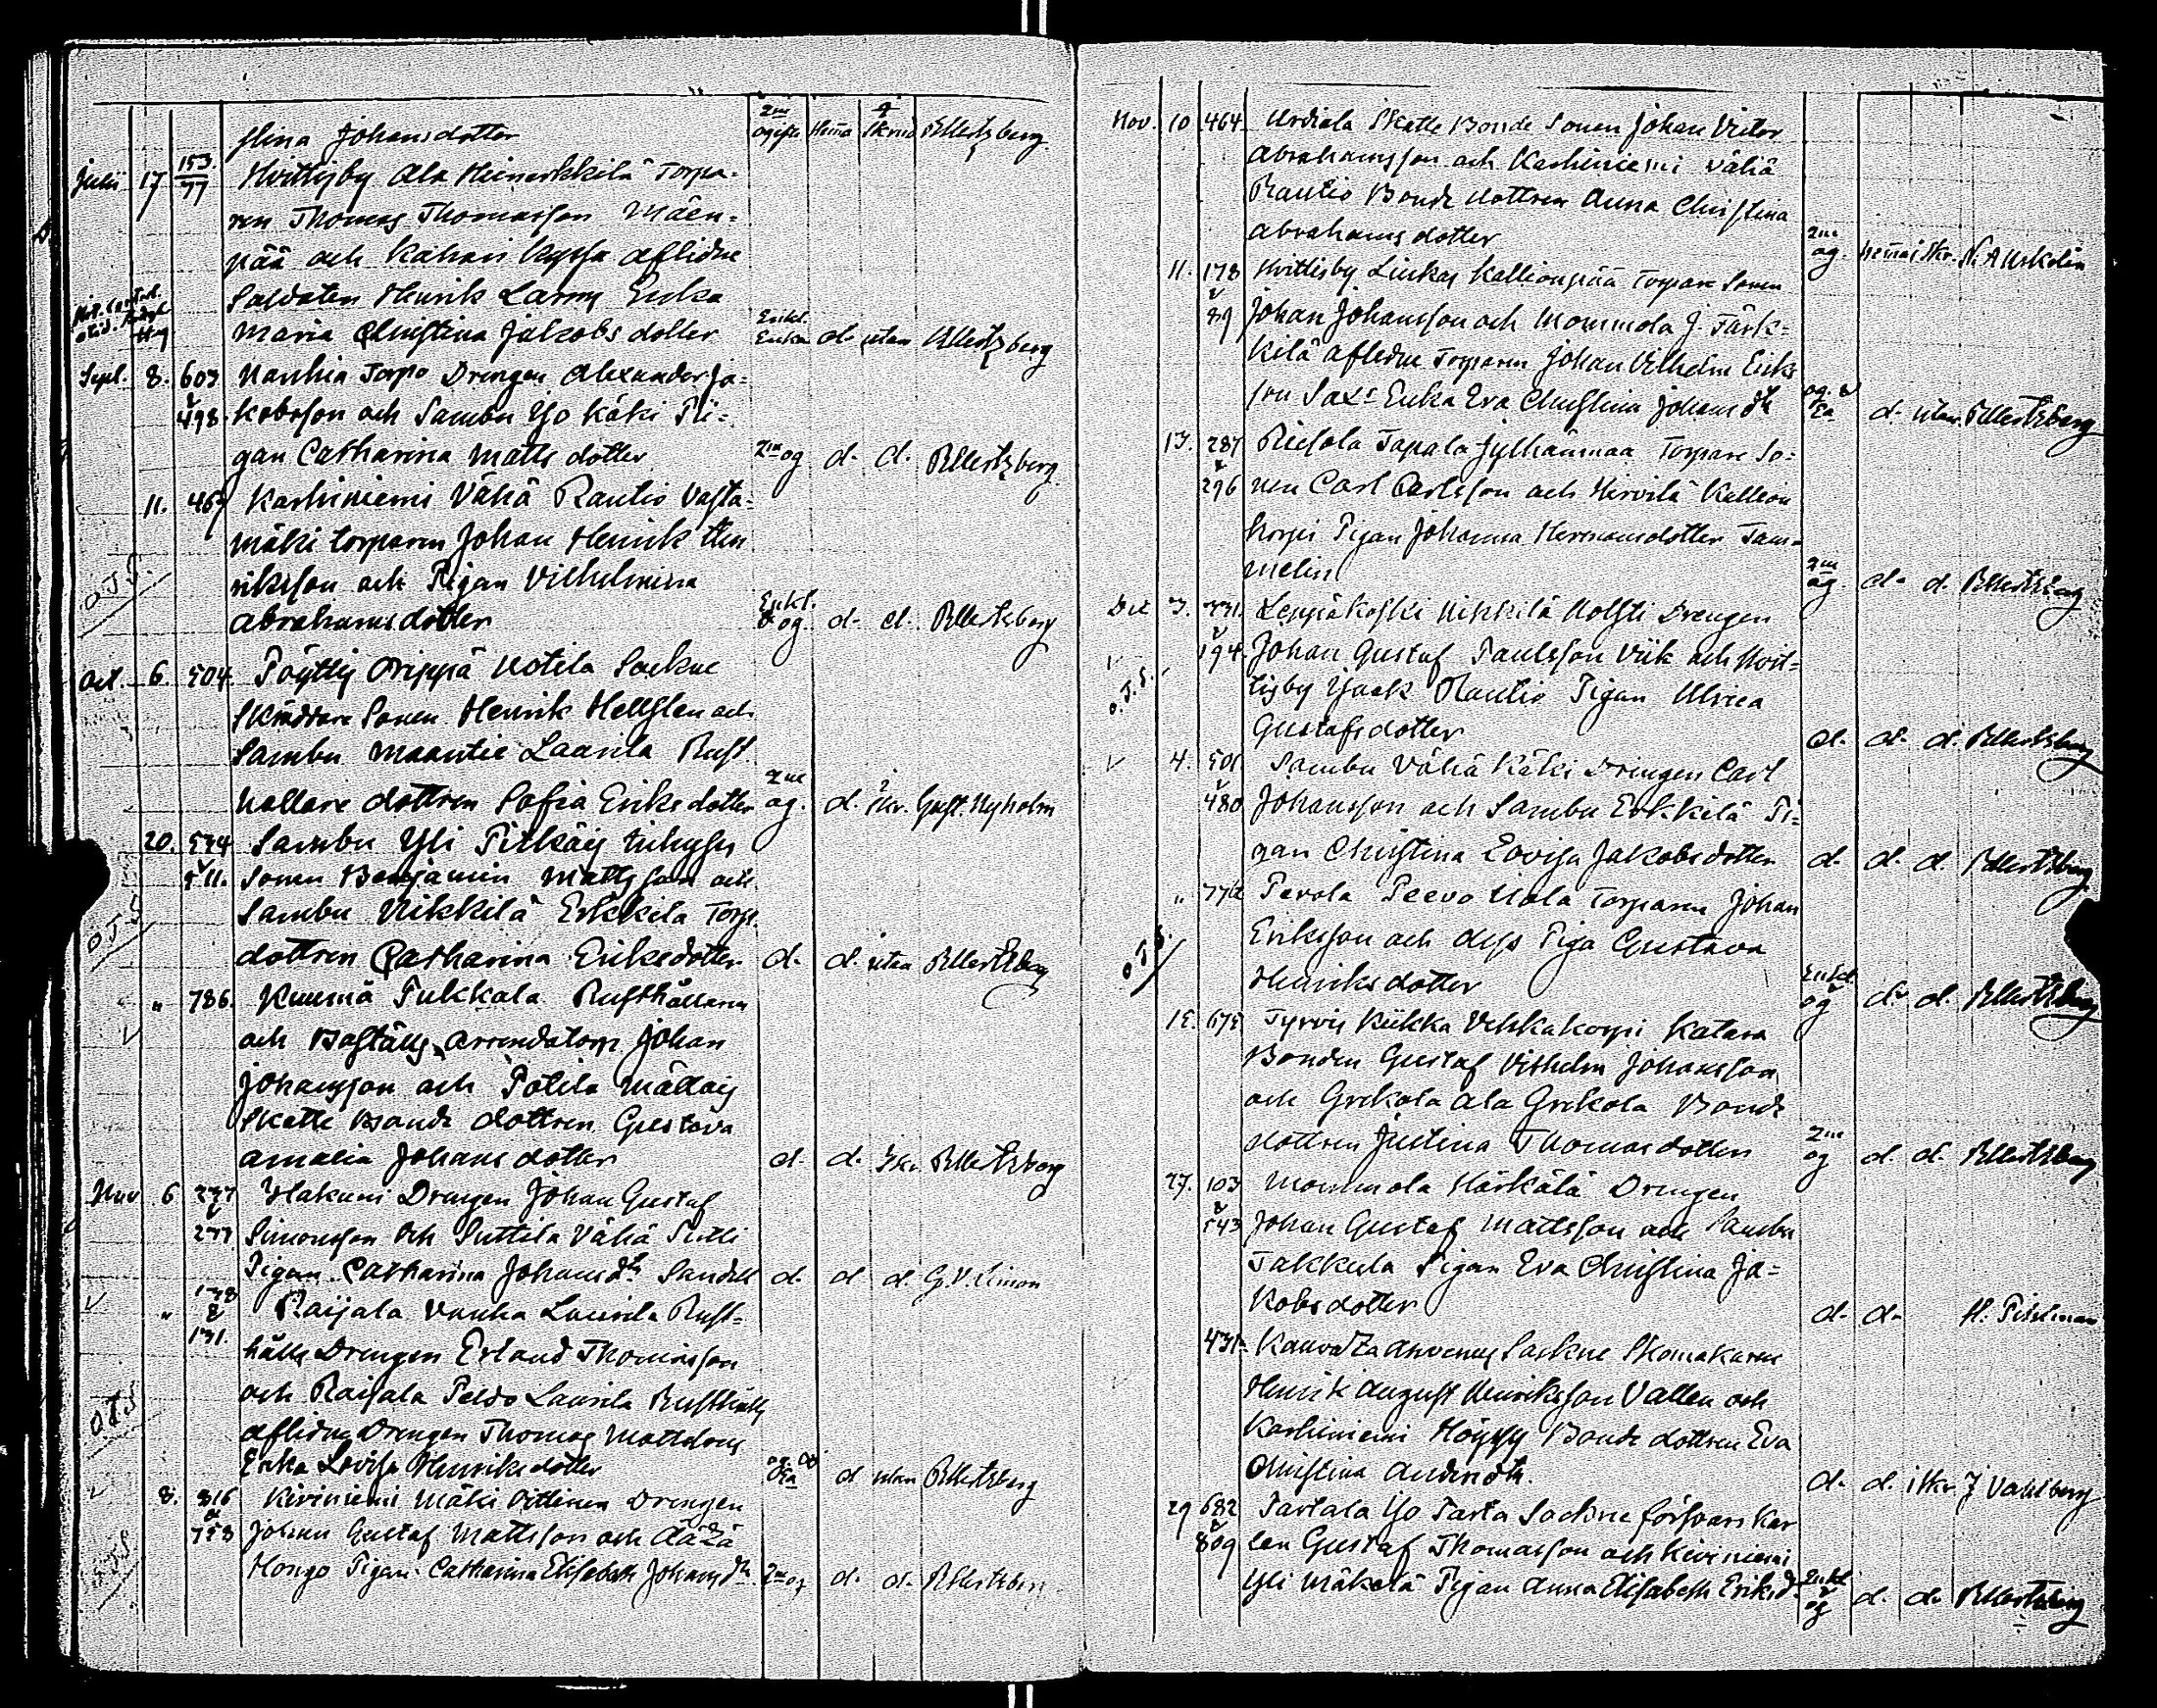 Johansdotter 2m ogifta Hema Skrud Ellertzberg
Julii 17 153/77 Hvittisby Ala Heinerkkilä Torpa-
ren Thomas Thomasson Mäen-
pää och Kahari aflidne
Soldaten Henrik Enka
Maria Christina Jakobs dotter Enkl. Enka d. utan Ellertzberg
Sept. 8. 603 & 498 Torpo Drengen Alexander Ja-
kobsson och Sambu Yjo Käki Pi-
gan Catharina Matts dotter 2m og d. d. Ellertzberg
11. Karhiniemi Vähä Rautio Vasta-
mäki torparen Johan Henrik Hen
riksson och Pigan Vilhelmina
Abrahamsdotter Enkl. & og. d. d. Ellertzberg
Oct. 6. 504. Pöytty Orippä Uotila Sockne
Skräddare Sonen Henrik Hellsten och
Sambu Maantie Laurila Rust
hållare dottren Sofia Eriksdotter 2m og. d. Gust. Nyholm
20. 574 & 511. Sambu Yli Pitkäis
Sonen Benjamin Mattsson och
Sambu Nikkilä Erkkila Torp.
dottren Catharina Eriksdotter d. d. utan Ellertzberg
" 786. Pukkala Rusthållaren
och Boställs arrendatorn Johan
Johansson och Potila Mälläis
Skatte Bonde dottren Gustava
Amalia Johans dotter d. d. Skr. Ellertzberg
Nov 6 & 277 Hakuni Drengen Johan Gustaf
Simonsson och Suttila Vähä Sutti
Pigan Catharina Johansdtr Sandell d. d d. G. V. Limon
" 178 & 131. Raijala Vanha Laurila Rust-
hålls Drengen Erland Thomasson
och Raijala Peldo Laurila Rusthålls
aflidne Drengen Thomas Mattsons
Enka Lovisa Henriksdotter og. & Ea d utan Ellertzberg
8. 816 & 758 Kiviniemi Mäki Vittinen Drengen
Johan Gustaf Mattsson och
Hongo Pigan Catharina Elisabeth Johans dtr. 2m og d. d. Ellertzberg
Nov. 10 464 Urdiala Skatte Bonde Sonen Johan Victor
Abrahamsson och Karhiniemi Vähä
Rautio Bonde dottren Anna Christina
Abrahamsdotter 2m og. hema Skr.
11. 178 & 89 Hvittisby Liukas Kallionpää Torpare Sonen
Johan Johansson och Mommola J. Tärk-
kilä aflidne Torparen Johan Vilhelm Eriks
son Sax Enka Eva Christina Johans dtr og. & Ea d. utan Ellertzberg
287 & 296 Riesola Tapala Jylhänmaa Torpare So-
nen Carl Carlsson och Hirvilä Kallion
korpi Pigan Johanna Hermansdotter Tam-
melin 2m og. d. d. Ellertzberg
Dec 3. & 194. Leppäkoski Nikkilä Holsti Drengen
Johan Gustaf Paulsson Viik och Hvit-
tisby Yjack Rautio Pigan Ulrica
Gustafsdotter d. d. d. Ellertzberg
4. 501 & 480 Sambu Vähä Käki Drengen Carl
Johansson och Sambu Erkkilä Pi-
gan Christina Lovisa Jakobsdotter d. d. d. Ellertzberg
" Pevola Peevo Uola Torparen Johan
Eriksson och dess Piga Gustava
Henriksdotter Enkl. & og d. d. Ellertzberg
15. 675 Tyrvis Kiikka Vehkakorpi Katara
Bonden Gustaf Vilhelm Johansson
och Grekola Ala Grekola Bonde
dottren Justina Thomasdotter 2m og d. d. Ellertzberg
27. 103 & 543 Mommola Härkälä Drengen
Johan Gustaf Mattsson och Sambu
Takkula Pigan Eva Christina Ja-
kobsdotter d. d. H. Pihlman
431 Kauvatza Sockne Skomakaren
Henrik August Henriksson Vallen och
Karhiniemi Höyssy Bonde dottren Eva
Christina Andersdtr. d. d. i Skr. J Vahlberg
29 682 & 809 Tartala Yjo Tarta Sockne försvars Kar
len Gustaf Thomasson och Kiviniemi
Yli Mäkelä Pigan Anna Elisabeth Eriksd. Enkl & og d. d. Ellertzberg